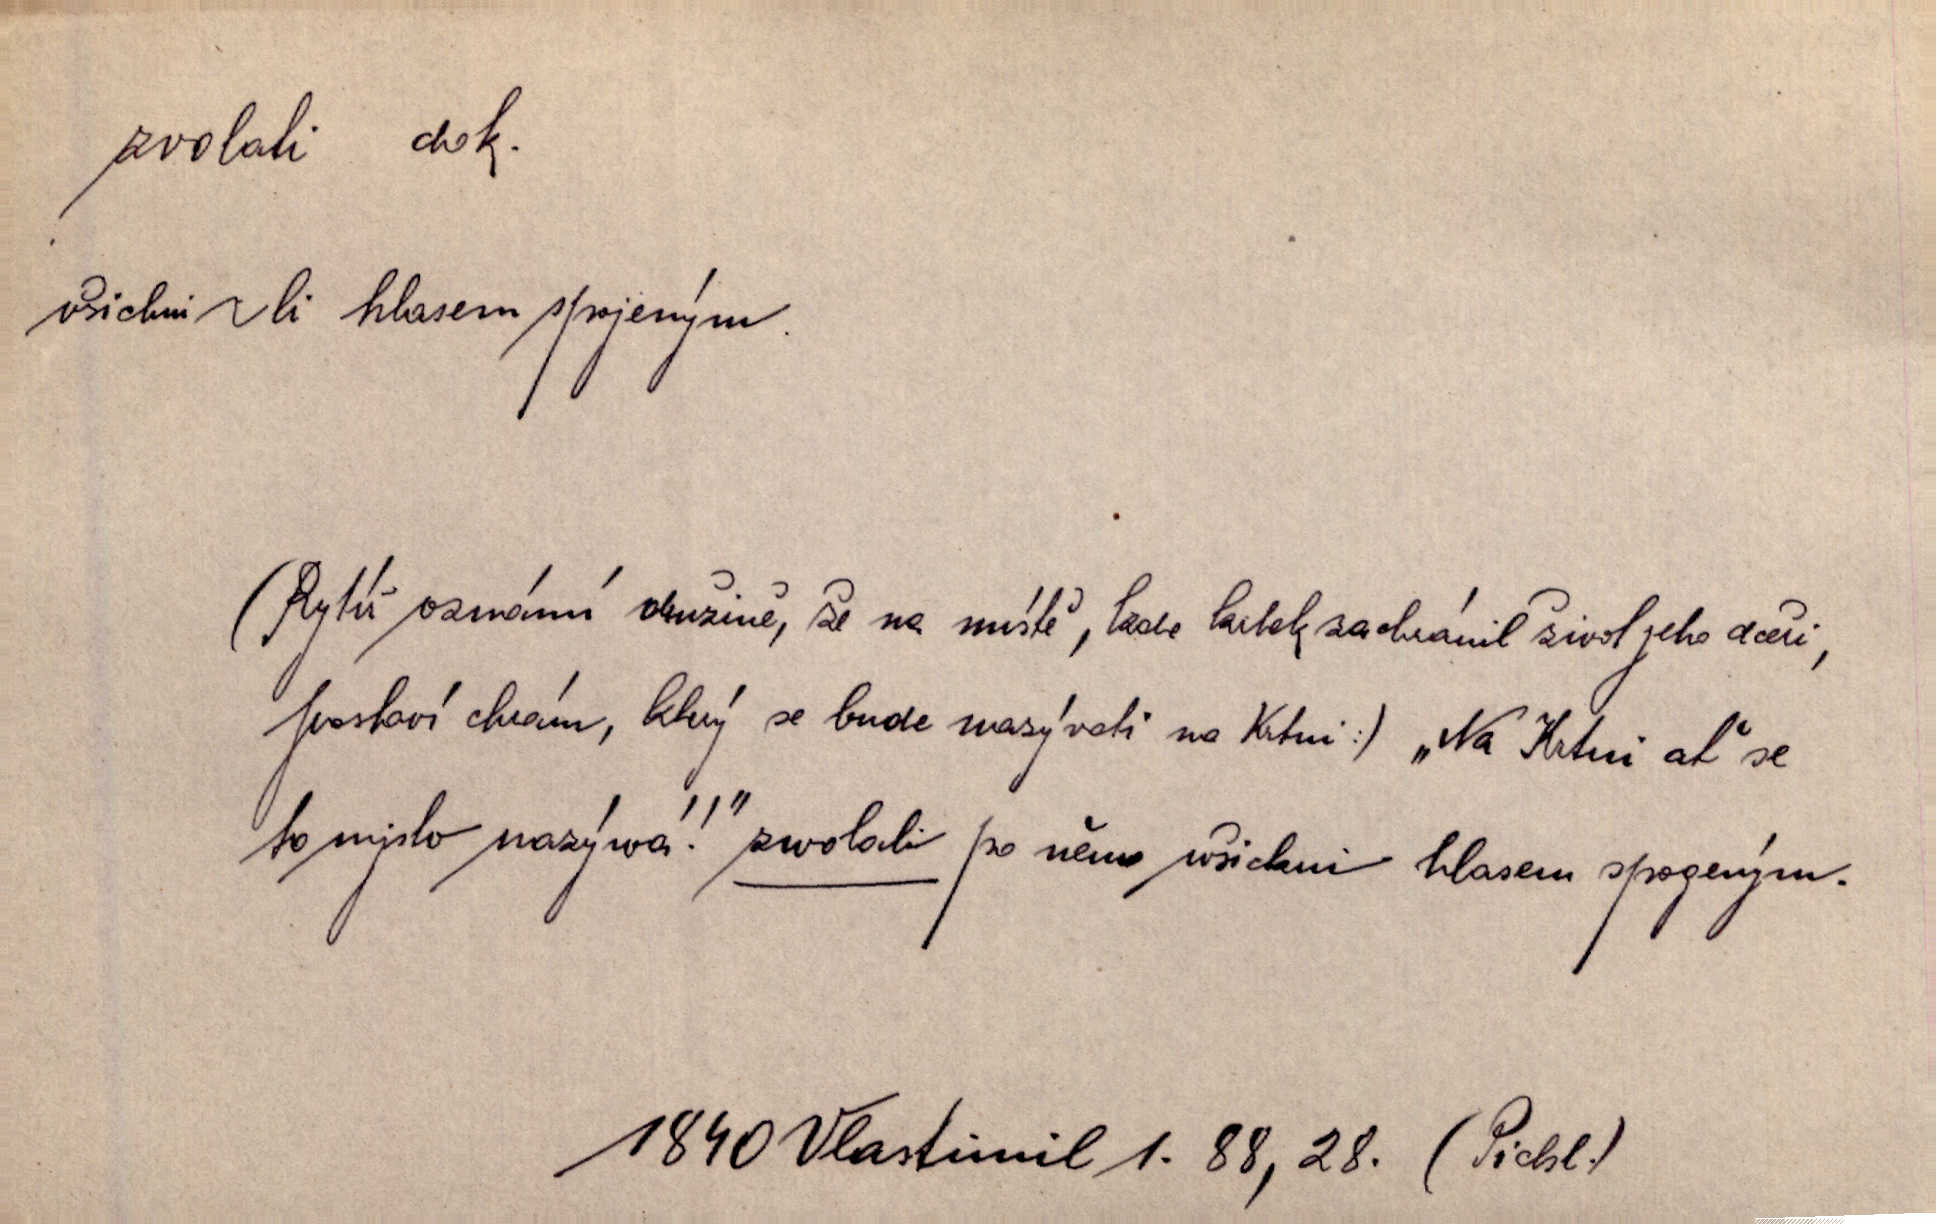 zvolati dok.
všichni z~li hlasem spojeným.
(Rytíř oznámí družině, že na místě, kde krtek zachránil život jeho dceři,
postaví chrám, který se bude nazývati na Krtni:) „Na Krtni ať se
to mjsto nazýwá!!" zwolali po něm wšickni hlasem spogeným.
1840 Vlastimil 1. 88, 28. (Pichl.)